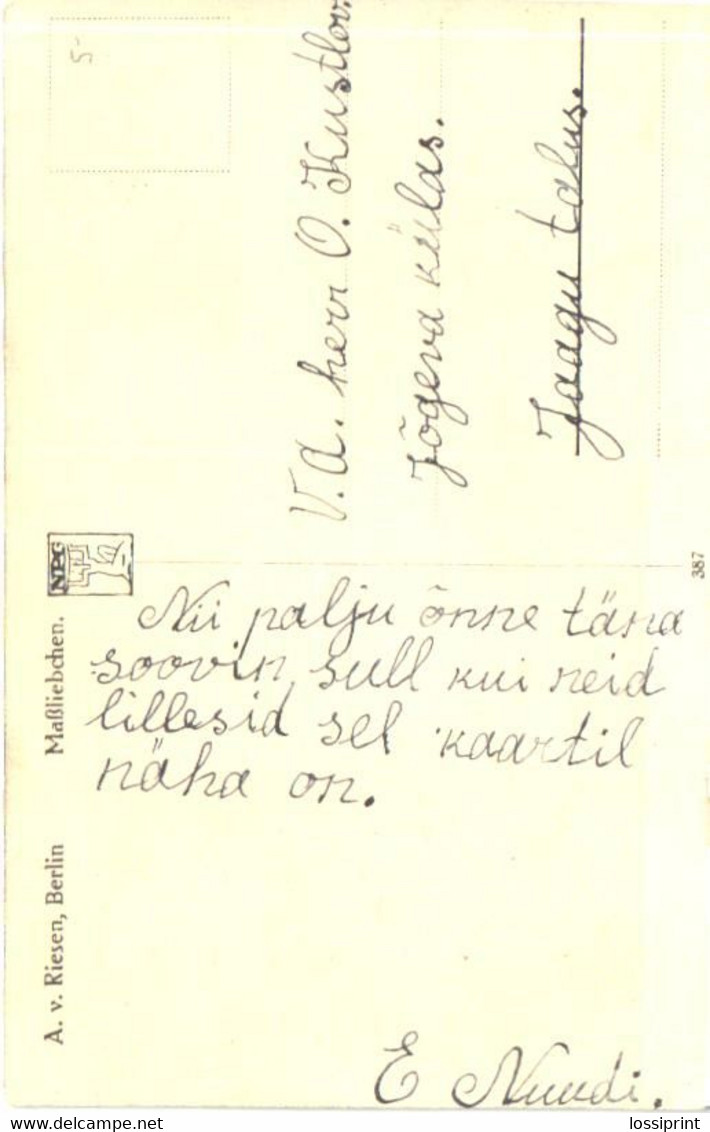 5-
V.A. herr O. Kustlov.
Jõgeva külas.
Jaagu talus.
NPG
387
Nii palju õnne täna
soovin sull kui neid
lillesid sel kaartil
näha on.
E Nuudi.
A. v. Riesen, Berlin Maßliebchen.
www.delcampe.net
lossiprint